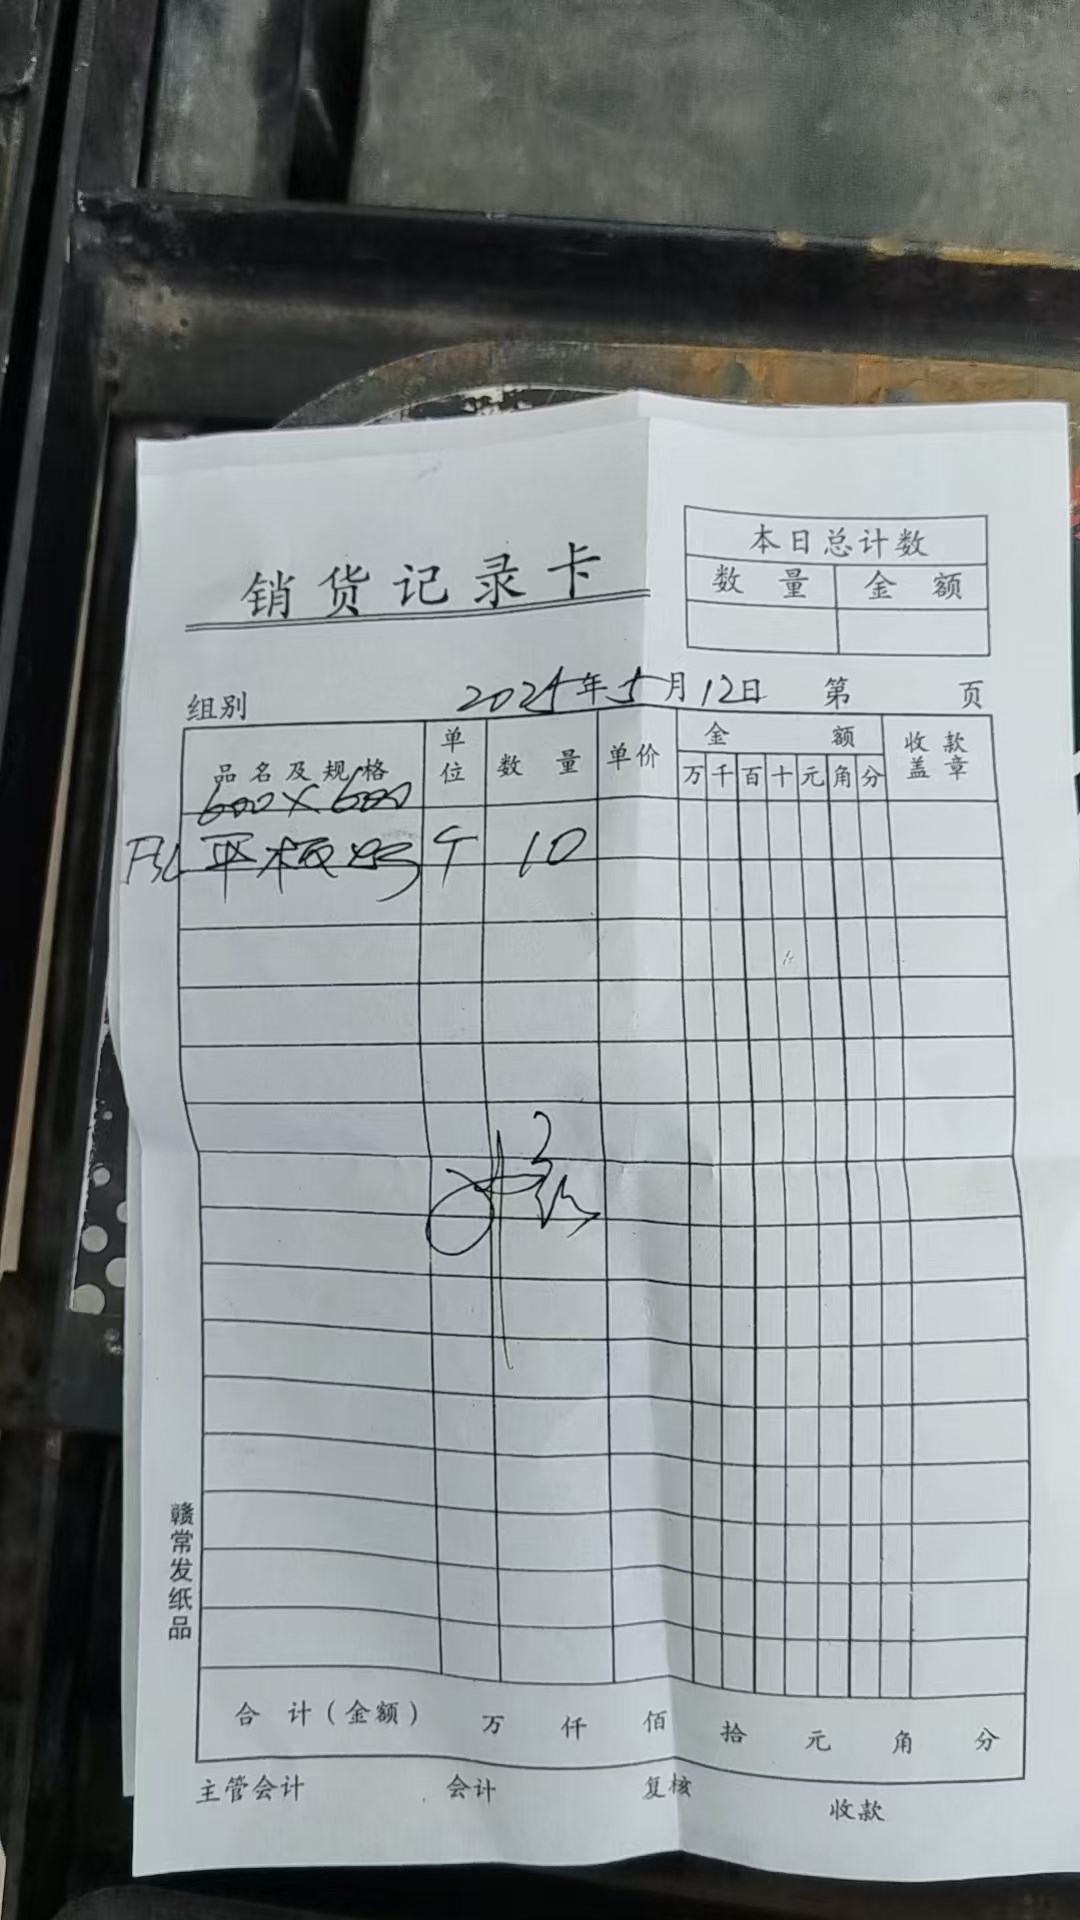 销货记录卡
本日总计数
数量 金额
组别 2025年5月12日 第 页
品名及规格 单位 数量 单价 金额 收款盖章
万 千 百 十 元 角 分
600×600
FSL 平板灯 个 10
赣常发纸品
合计(金额) 万 仟 佰 拾 元 角 分
主管会计 会计 复核 收款